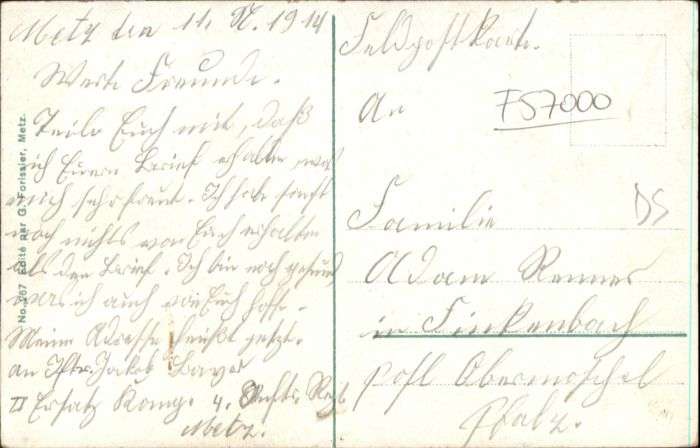 Metz den 11. X. 1914
Werte Freunde.
Teile Euch mit, daß
ich Euren Brief erhalten, was
mich sehr freut. Ich habe sonst
noch nichts von Euch erhalten
als den Brief. Ich bin noch gesund,
was ich auch von Euch hoffe.
Meine Adresse heißt jetzt.
an Jakob Bayer
II Ersatz Komp. 4. Regt
Metz.
No. 167 Edité par G. Forissier, Metz.
Feldpostkarte.
An
FS7000
DS
Familie
Adam Renner
in Finkenbach
post Obermoschel
Pfalz.